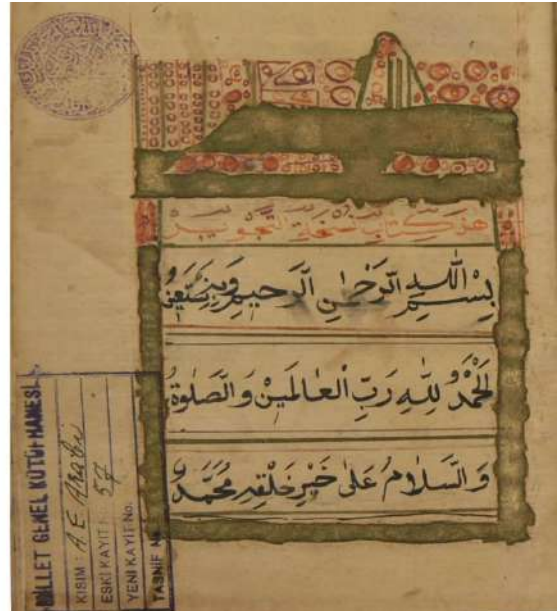 هذ كتاب نسخة التجويد
بِسْمِ اللّٰهِ الرَّحْمٰنِ الرَّحِيمِ وَبِهِ نَسْتَعِينُ
اَلْحَمْدُ لِلّٰهِ رَبِّ الْعَالَمِينَ وَالصَّلٰوةُ
وَالسَّلَامُ عَلٰى خَيْرِ خَلْقِهِ مُحَمَّدٍ
MİLLET GENEL KÜTÜPHANESİ
KISIM: A.E. Arabi
ESKİ KAYIT No. 57
YENİ KAYIT No.
TASNİF No.